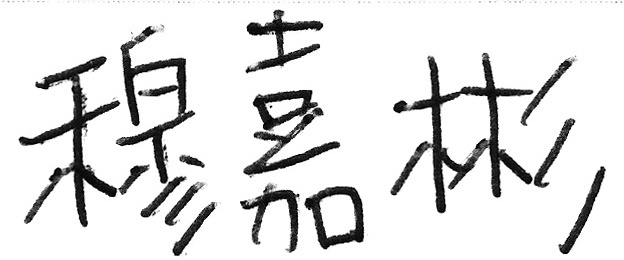 穆嘉彬